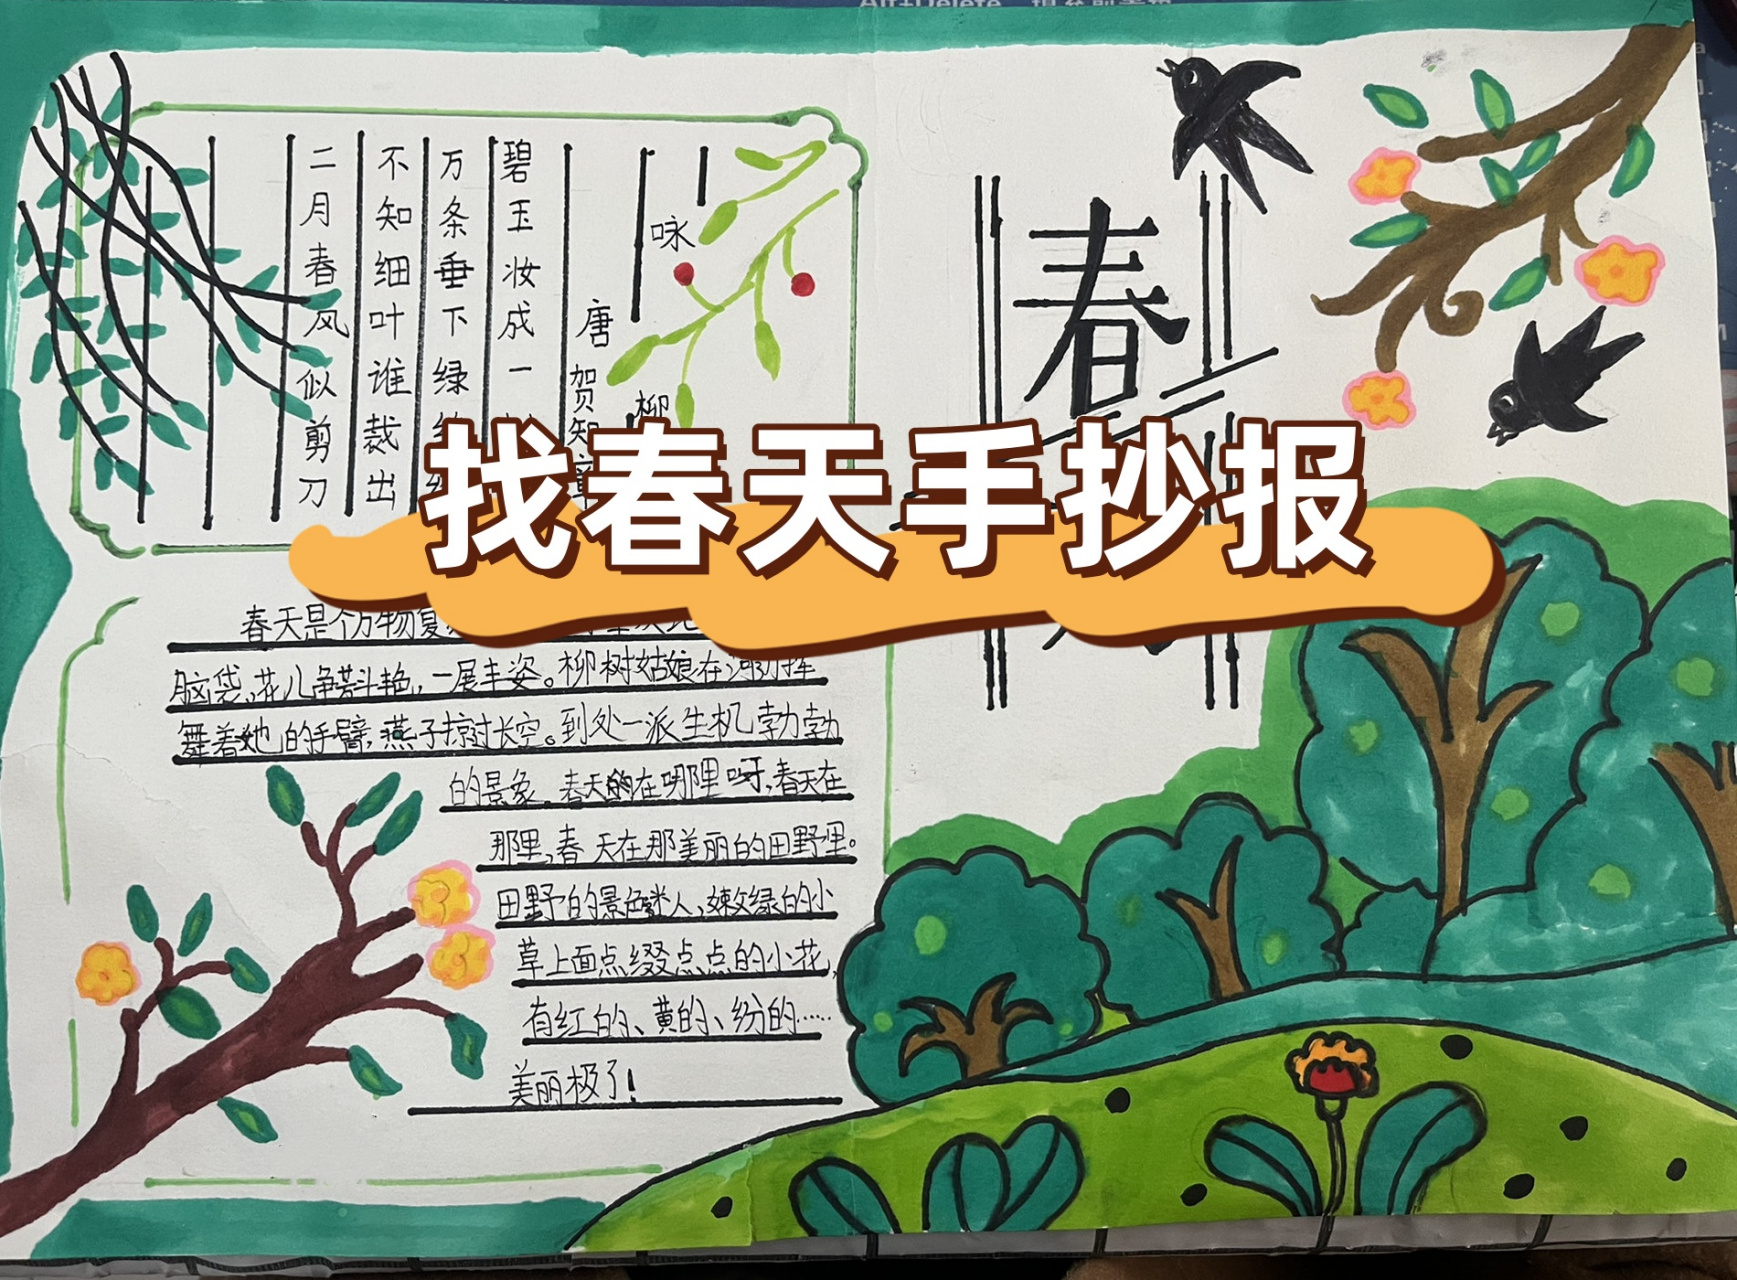 找春天手抄报
春
咏
柳
唐 贺知
碧玉妆成一
万条垂下绿
不知细叶谁裁出
二月春风似剪刀
春天是个万物复
脑袋,花儿争芳斗艳,一展丰姿。柳树姑娘在河边挥
舞着她的手臂,燕子掠过长空。到处一派生机勃勃
的景象。春天的在哪里呀,春天在
那里,春天在那美丽的田野里。
田野的景色迷人,嫩绿的小
草上面点缀点点的小花,
有红的、黄的、纷的……
美丽极了!